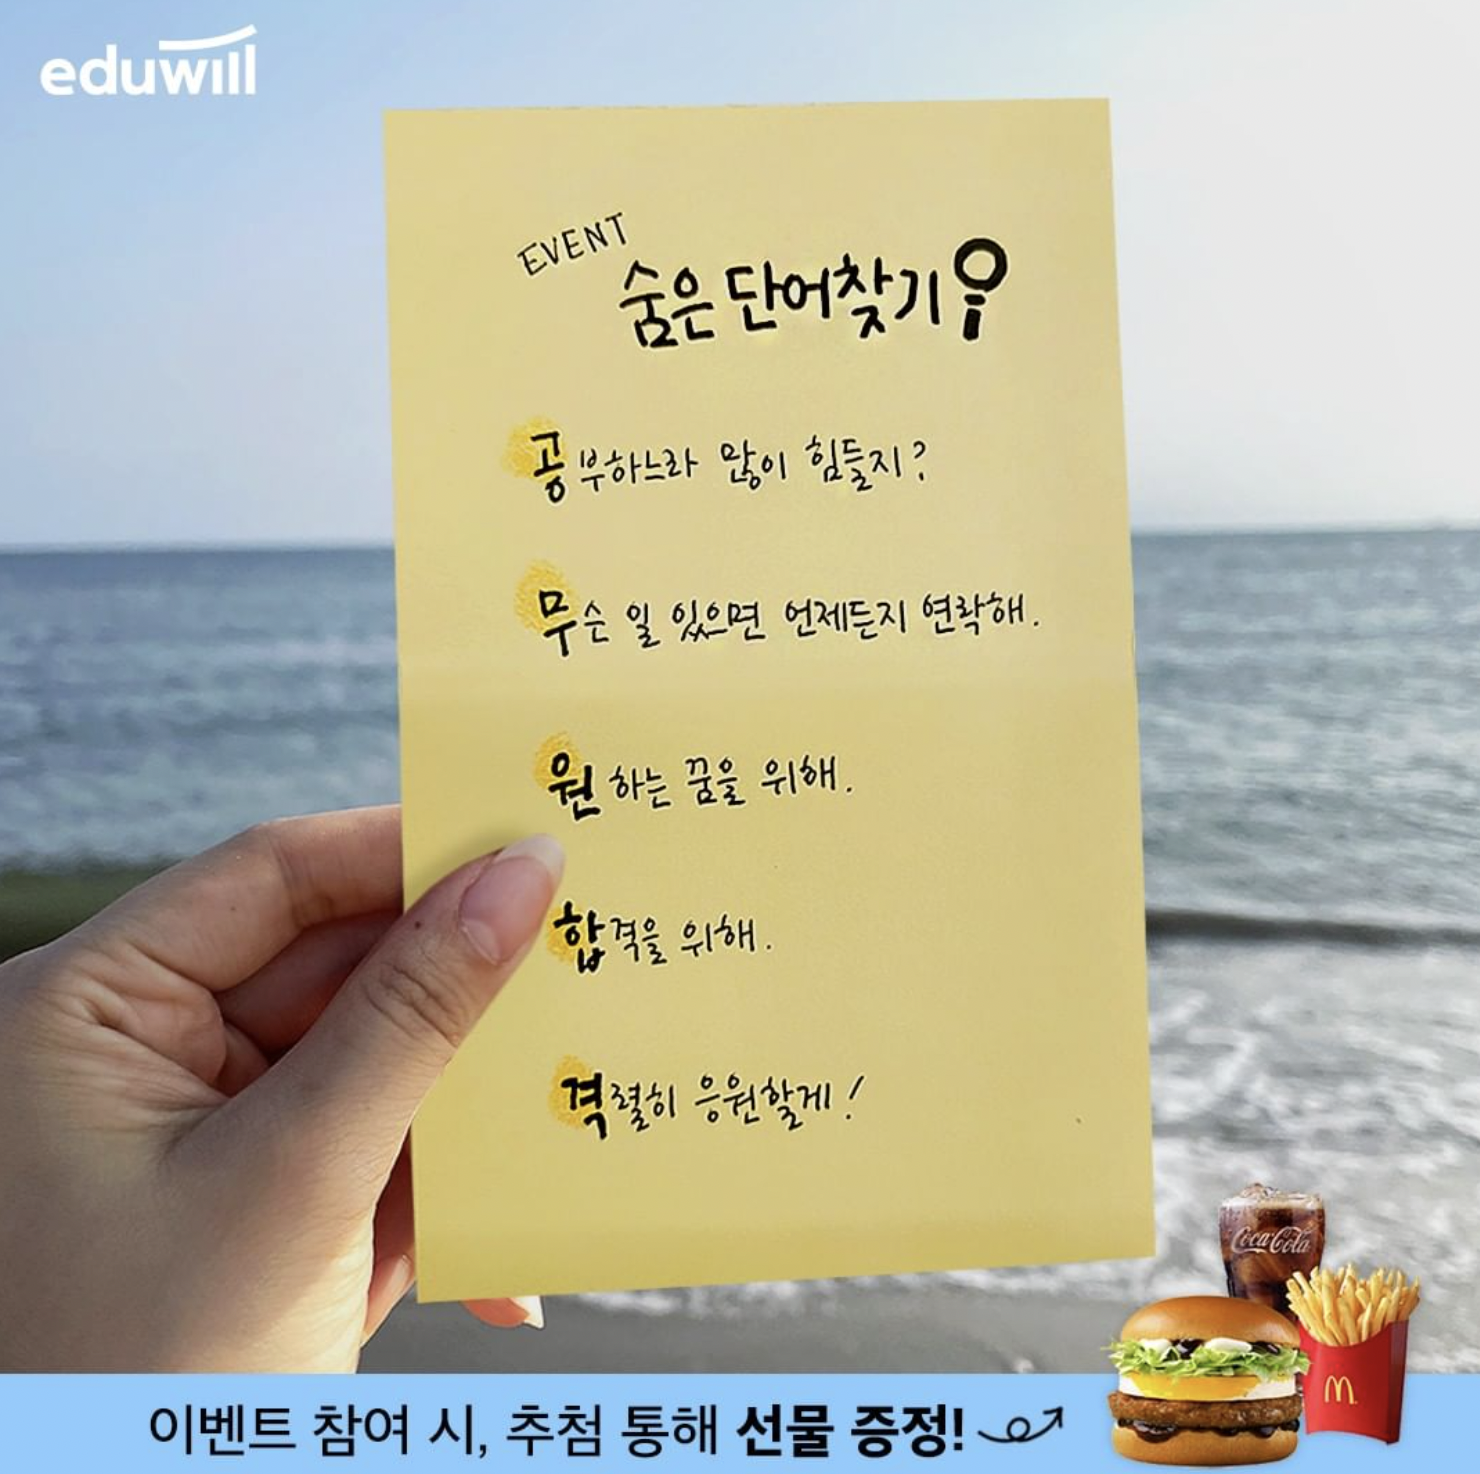 eduwill
EVENT
숨은 단어찾기
공부하느라 많이 힘들지?
무슨 일 있으면 언제든지 연락해.
원하는 꿈을 위해.
합격을 위해.
격렬히 응원할게!
Coca-Cola
M
이벤트 참여 시, 추첨 통해 선물 증정!